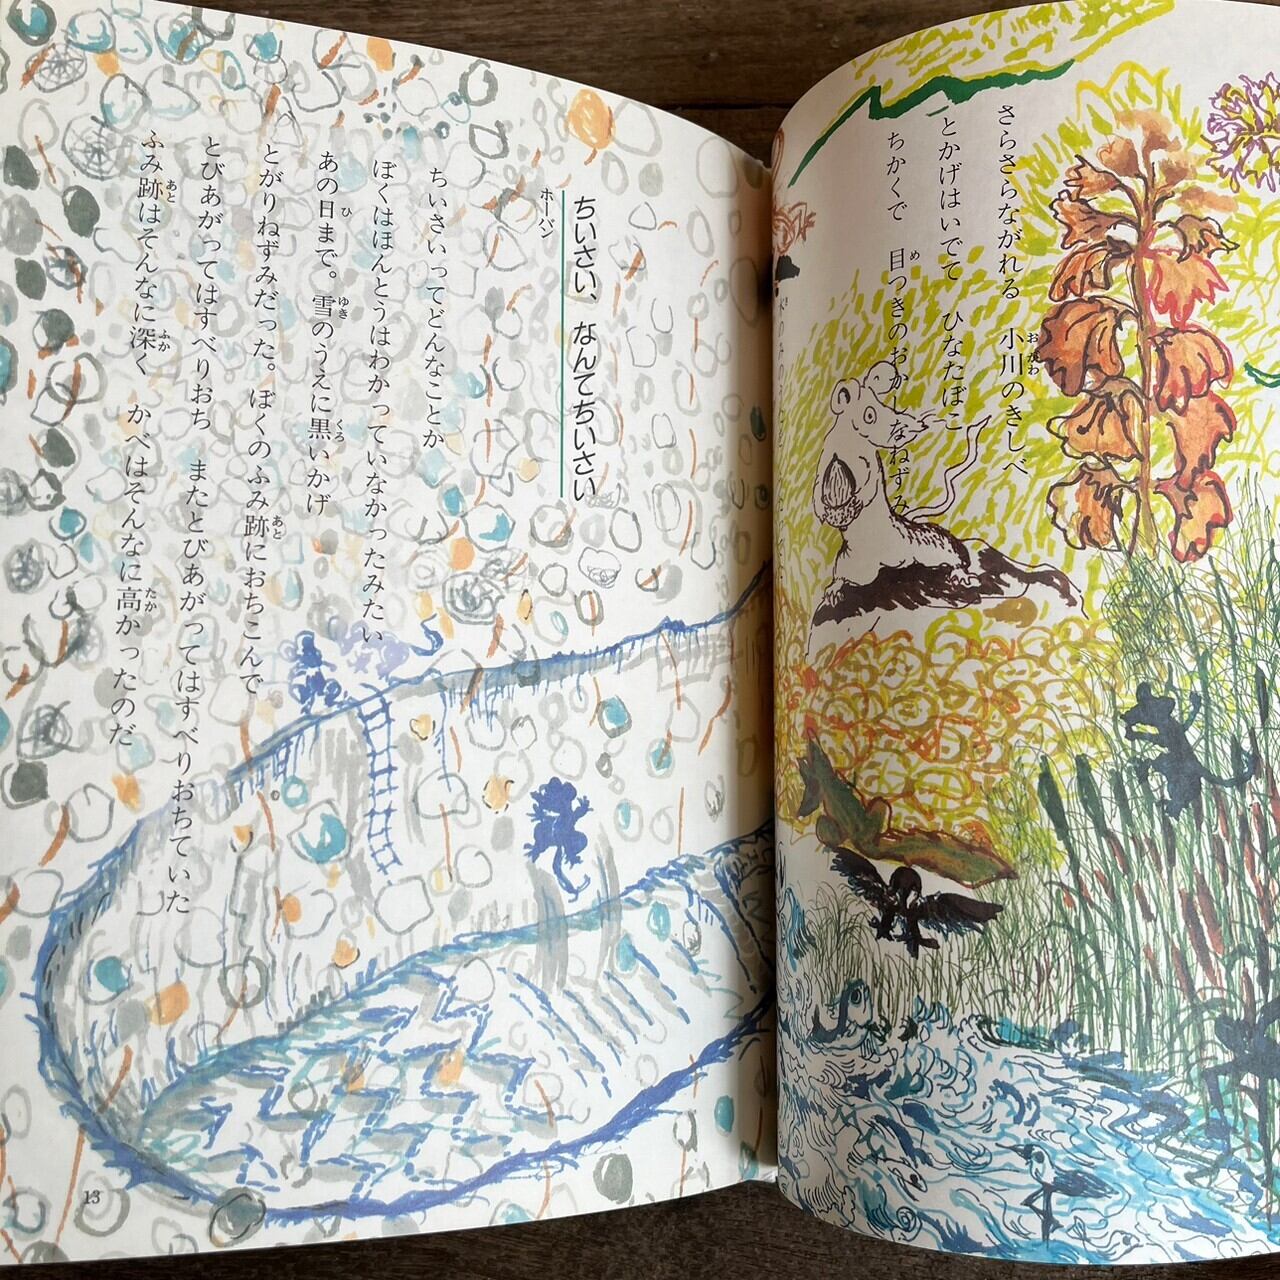 さらさらながれる　小川のきしべ
とかげはいでて　ひなたぼこ
ちかくで　目つきのおかしなねずみ
ちいさい、なんてちいさい
ホーバン
ちいさいってどんなことか
ぼくはほんとうはわかっていなかったみたい
あの日まで。雪のうえに黒いかげ
とがりねずみだった。ぼくのふみ跡におちこんで
とびあがってはすべりおち　またとびあがってはすべりおちていた
ふみ跡はそんなに深く　かべはそんなに高かったのだ
13